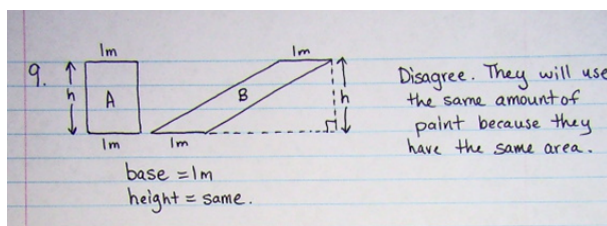 9.
1m
h
A
1m
1m
B
1m
h
base = 1m
height = same.
Disagree. They will use
the same amount of
paint because they
have the same area.